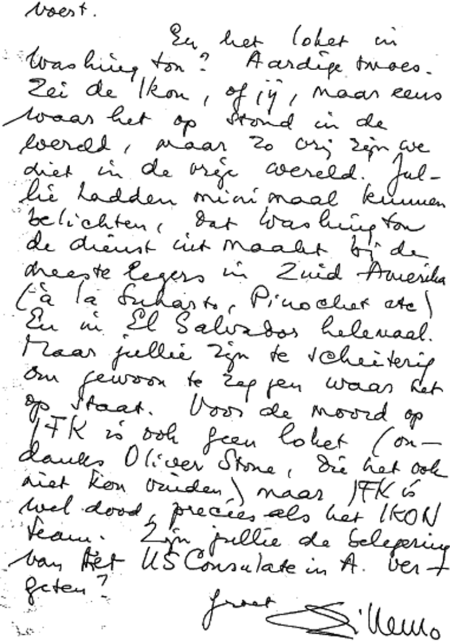 voert.
En het loket in
Washington? Aardige smoes.
Zei de Ikon, of jij, maar eens
waar het op stond in de
wereld, maar zo vrij zijn we
niet in de vrije wereld. Jul-
lie hadden minimaal kunnen
belichten, dat Washington
de dienst uit maakt bij de
meeste legers in Zuid Amerika
(à la Suharto, Pinochet etc)
En in El Salvador helemaal.
Maar jullie zijn te scheiterig
om gewoon te zeggen waar het
op staat. Voor de moord op
JFK is ook geen loket (on-
danks Oliver Stone, die het ook
niet kon vinden) maar JFK is
wel dood, precies als het IKON
team. Zijn jullie de belegering
van het US Consulate in A. ver-
geten?
groet
Willem